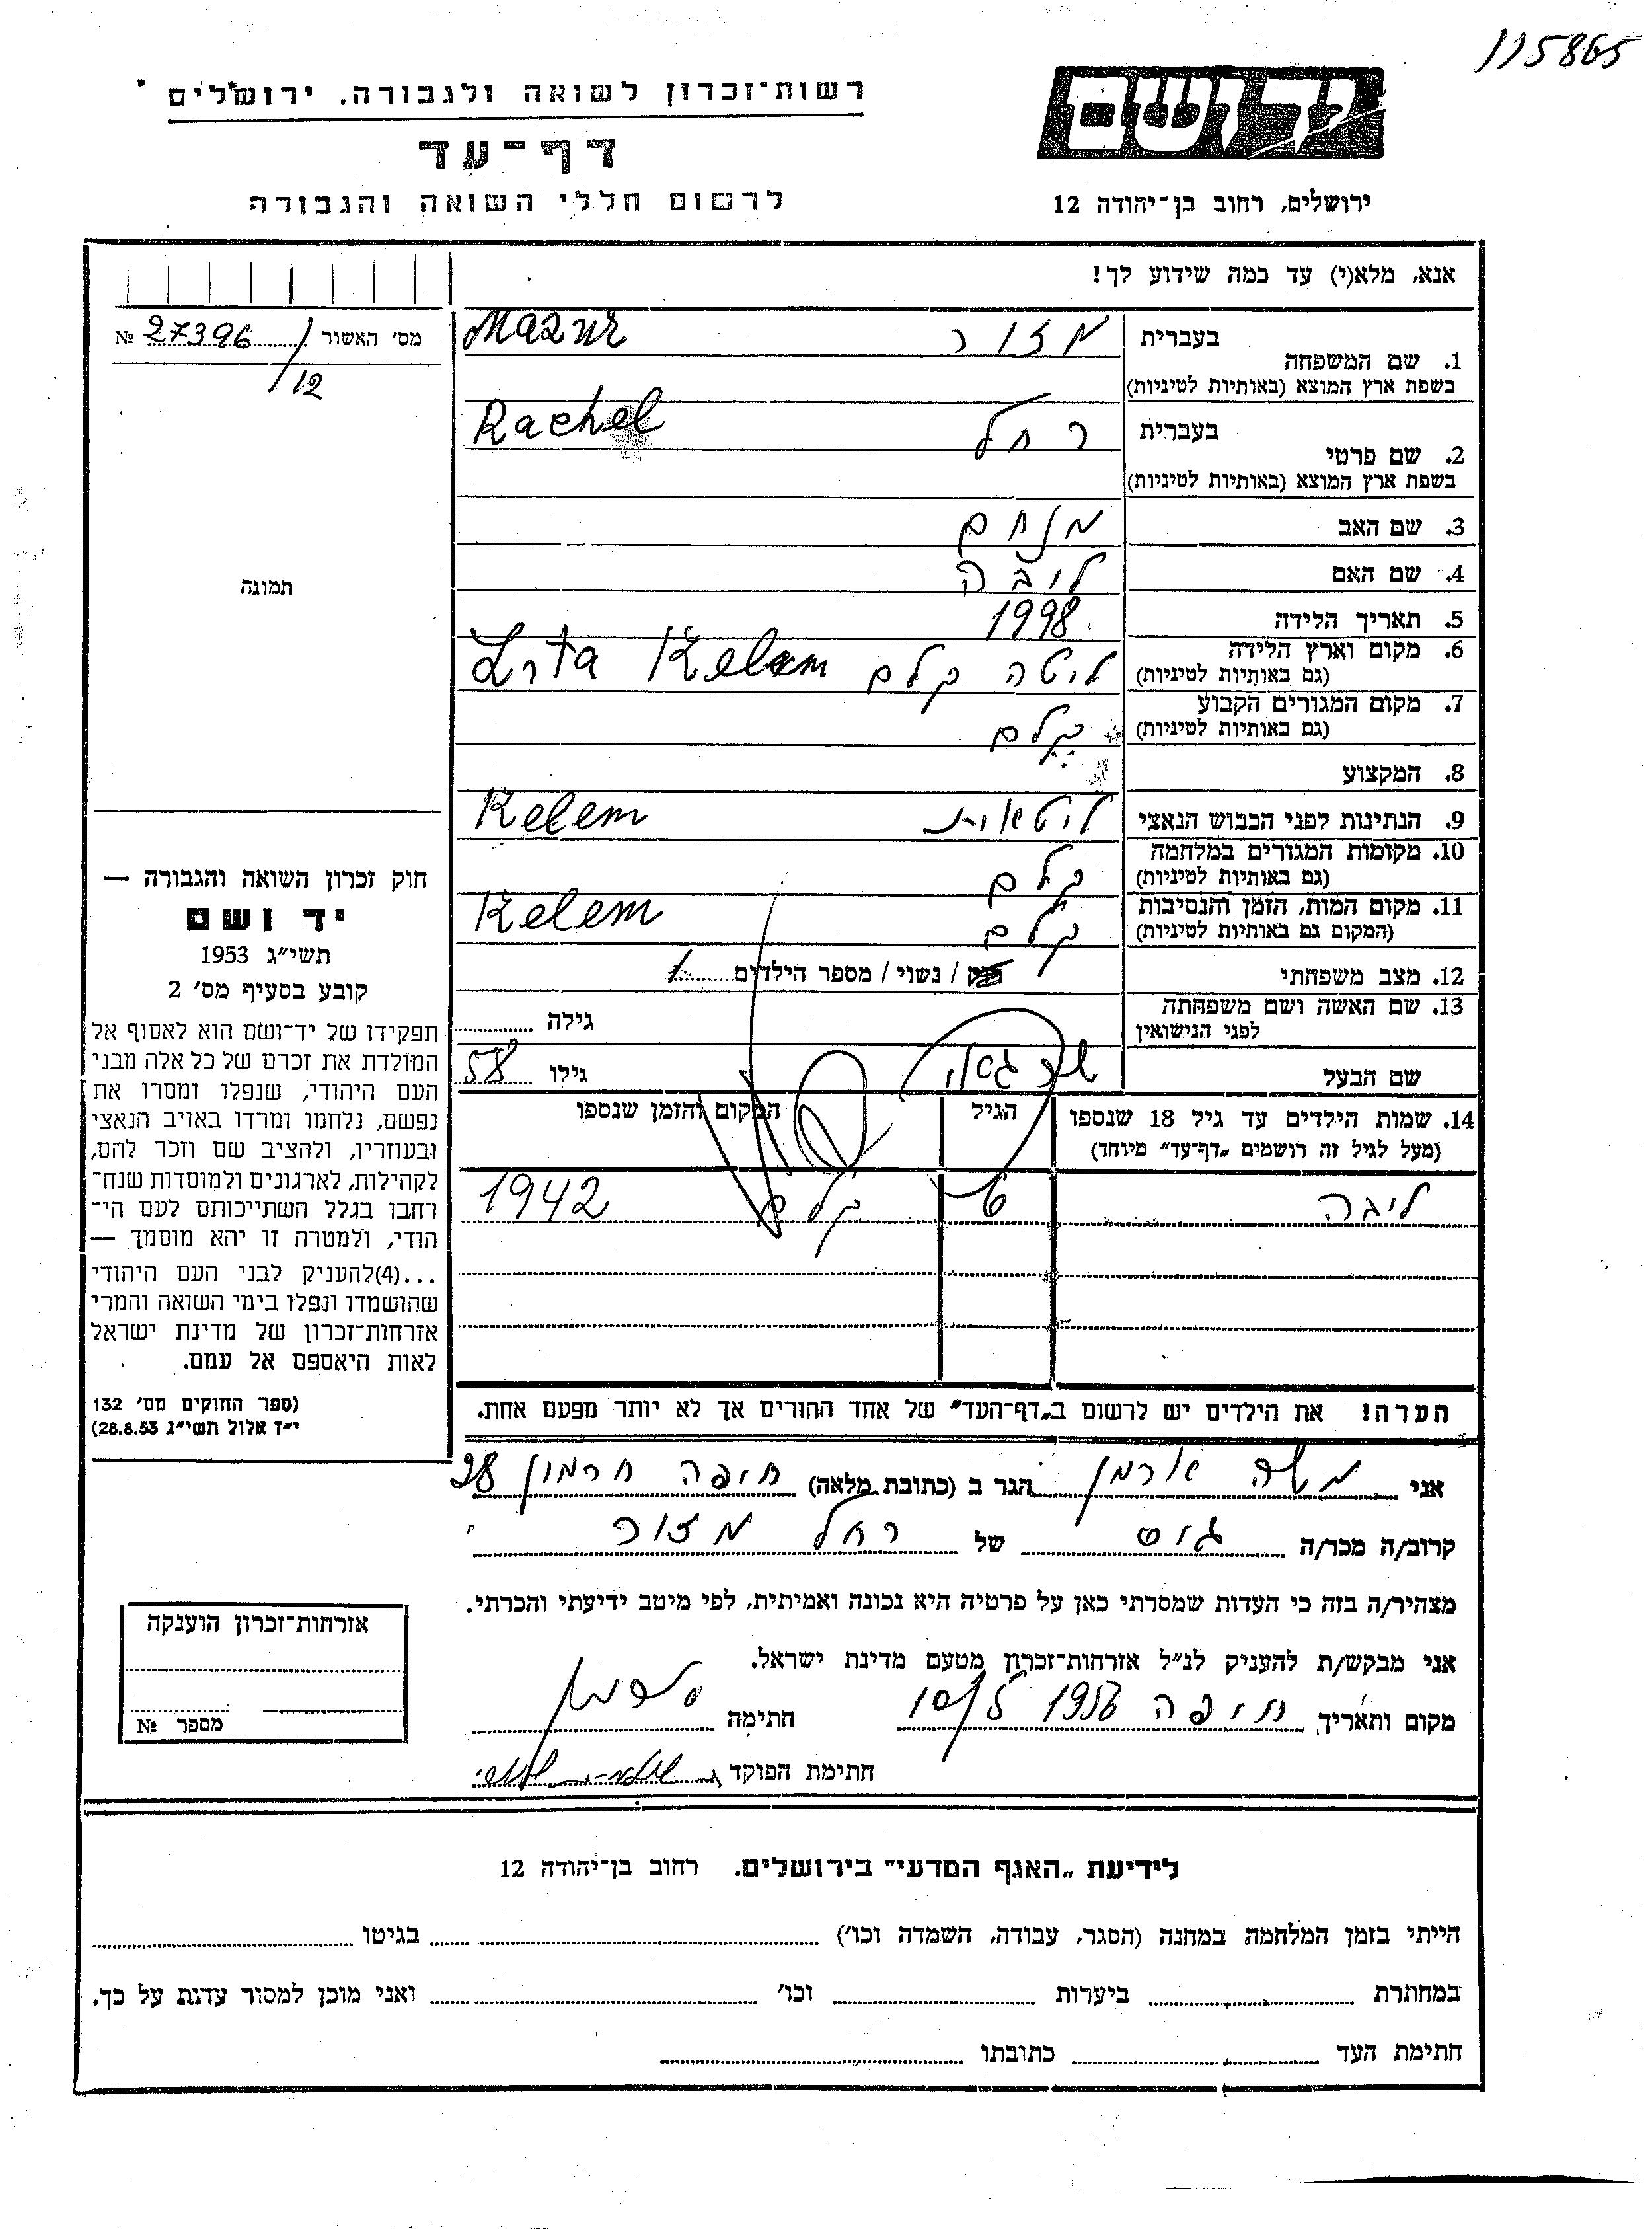 115865
רשות־זכרון לשואה ולגבורה, ירושלים
דף־עד
לרשום חללי השואה והגבורה
יד ושם
ירושלים, רחוב בן־יהודה 12
אנא, מלא(י) עד כמה שידוע לך!
מס' האשור № 27396 / 12
תמונה
1. שם המשפחה בעברית מזור Mazur
בשפת ארץ המוצא (באותיות לטיניות)
2. שם פרטי בעברית רחל Rachel
בשפת ארץ המוצא (באותיות לטיניות)
3. שם האב מנחם
4. שם האם ליבה
5. תאריך הלידה 1998
6. מקום וארץ הלידה ליטה קלם Lita Kelem
(גם באותיות לטיניות)
7. מקום המגורים הקבוע קלם
(גם באותיות לטיניות)
8. המקצוע
9. הנתינות לפני הכבוש הנאצי ליטאית Kelem
10. מקומות המגורים במלחמה קלם
(גם באותיות לטיניות)
11. מקום המות, הזמן והנסיבות קלם Kelem
(המקום גם באותיות לטיניות)
12. מצב משפחתי רווק / נשוי / מספר הילדים 1
13. שם האשה ושם משפחתה גילה
לפני הנישואין
שם הבעל גילו 58
14. שמות הילדים עד גיל 18 שנספו הגיל המקום והזמן שנספו
(מעל לגיל זה רושמים "דף־עד" מיוחד)
ליבה קלם 1942
הערה! את הילדים יש לרשום ב"דף־העד" של אחד ההורים אך לא יותר מפעם אחת.
חוק זכרון השואה והגבורה —
יד ושם
תשי"ג 1953
קובע בסעיף מס' 2
תפקידו של יד־ושם הוא לאסוף אל
המולדת את זכרם של כל אלה מבני
העם היהודי, שנפלו ומסרו את
נפשם, נלחמו ומרדו באויב הנאצי
ובעוזריו, ולהציב שם וזכר להם,
לקהילות, לארגונים ולמוסדות שנח־
רחבו בגלל השתייכותם לעם הי־
הודי, ולמטרה זו יהא מוסמך —
...(4)להעניק לבני העם היהודי
שהושמדו ונפלו בימי השואה והמרי
אזרחות־זכרון של מדינת ישראל
לאות היאספם אל עמם.
(ספר החוקים מס' 132
י"ז אלול תשי"ג 28.8.53)
אני משה הגר ב (כתובת מלאה) חיפה חרמון 28
קרוב/ה מכר/ה גיס של רחל מזור
מצהיר/ה בזה כי העדות שמסרתי כאן על פרטיה היא נכונה ואמיתית, לפי מיטב ידיעתי והכרתי.
אני מבקש/ת להעניק לנ"ל אזרחות־זכרון מטעם מדינת ישראל.
מקום ותאריך חיפה 1956 חתימה
חתימת הפוקד
אזרחות־זכרון הוענקה
מספר №
לידיעת "האגף המדעי" בירושלים. רחוב בן־יהודה 12
הייתי בזמן המלחמה במחנה (הסגר, עבודה, השמדה וכו') בגיטו
במחתרת ביערות וכו' ואני מוכן למסור עדות על כך.
חתימת העד כתובתו